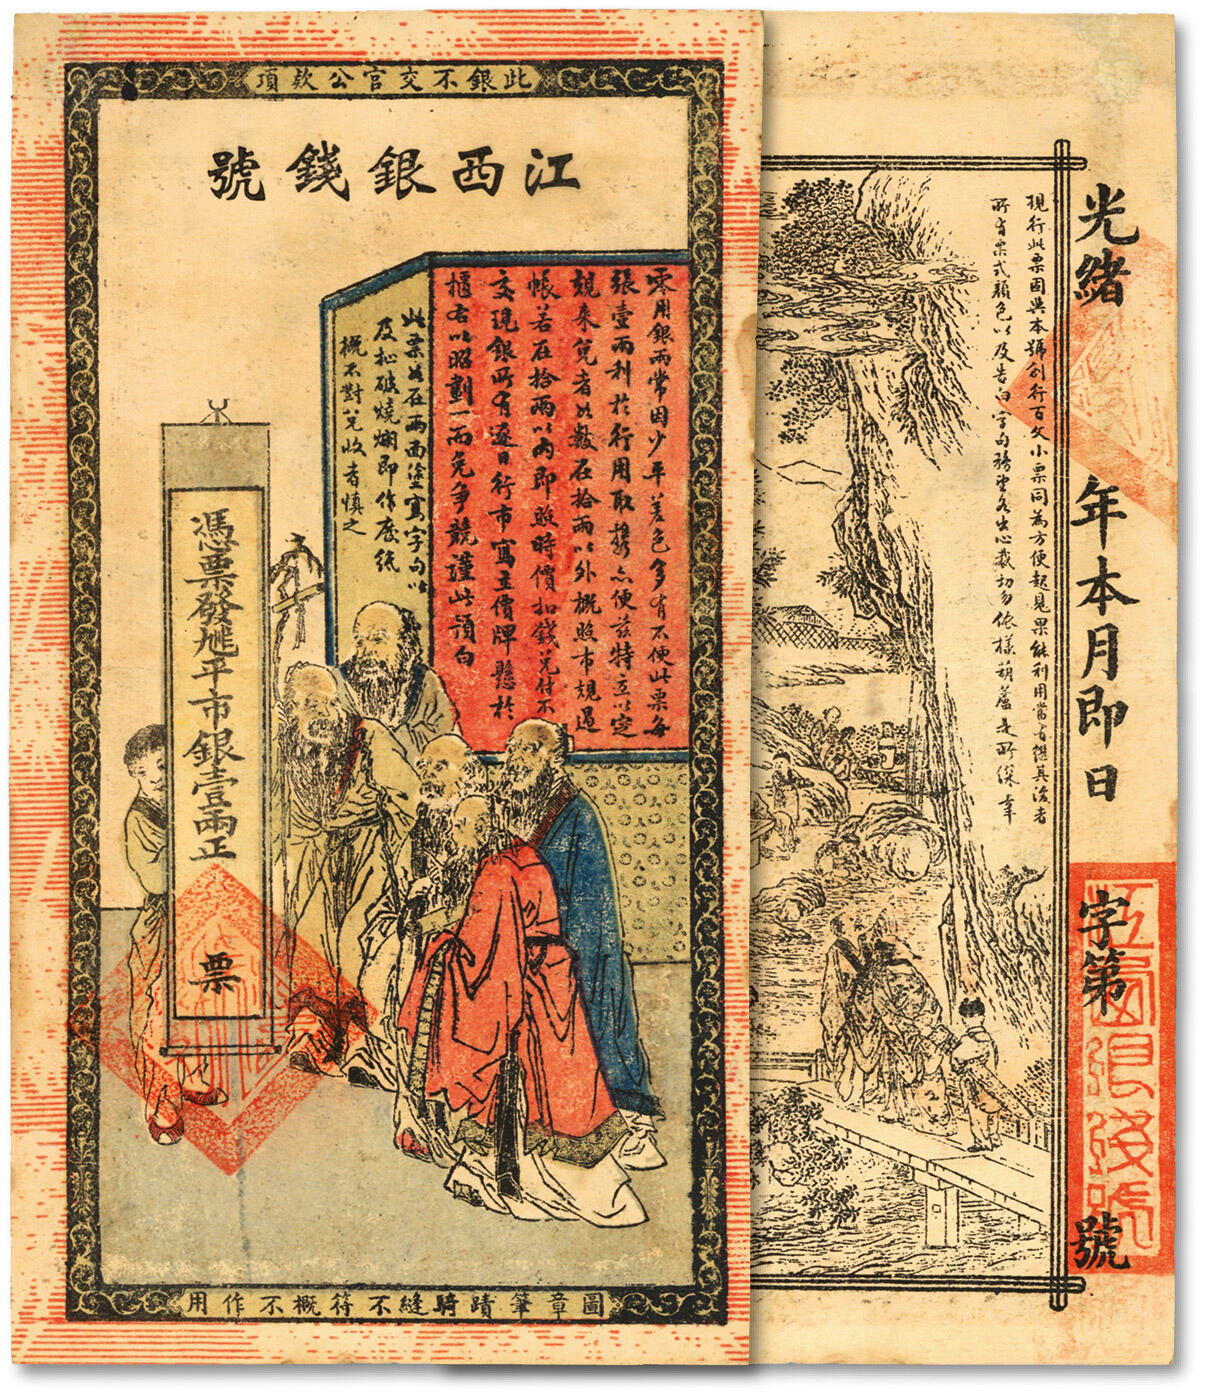 此銀不交官公款項
江西銀錢號
零用銀兩常因少平差色多有不便此票每
張壹兩利於行用取攜亦便茲特立以定
規來兌者其數在拾兩以外概照市規過
帳若在拾兩以內即照時價扣錢兌付不
交現銀所有逐日行市寫立價牌懸於
櫃右以昭劃一而免爭競謹此預白
此票如在兩面塗寫字句以
及扯破燒爛即作廢紙
概不對兌收者慎之
憑票發九三八平市銀壹兩正
票
圖章筆蹟騎縫不符概不作用
光緒 年本月即日 字第 號
江西銀錢號
現行此票因與本號創行百文小票同為方便起見果能利用當有傚其後者
所有票式顏色以及告白字句務望各出心裁切勿依樣葫蘆是所深幸